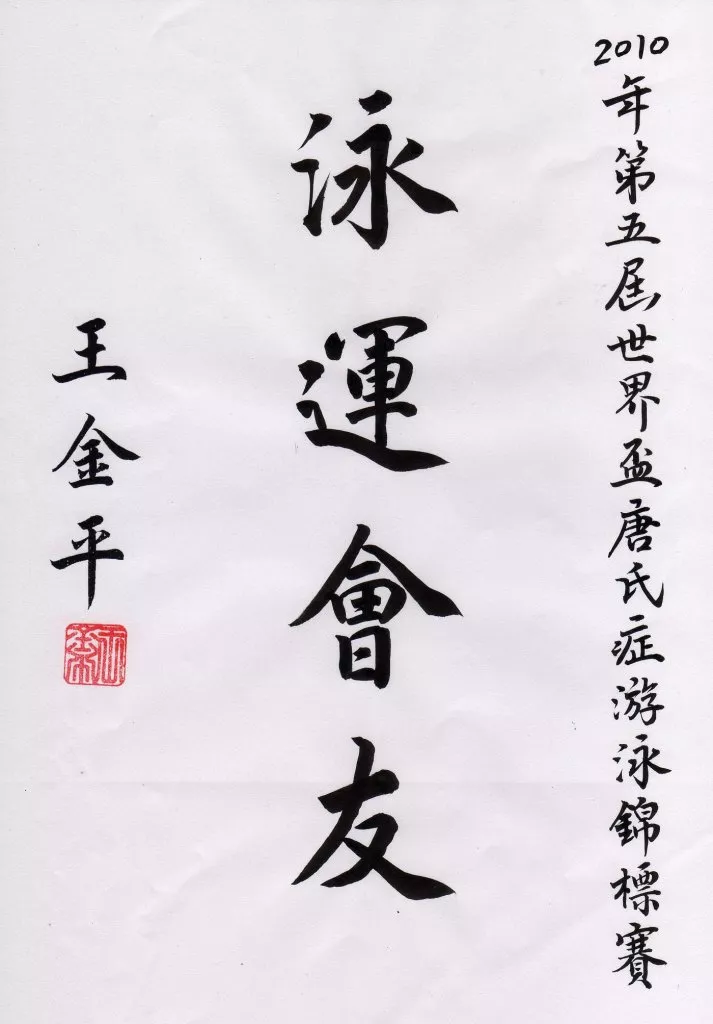 2010年第五屆世界盃唐氏症游泳錦標賽
泳運會友
王金平